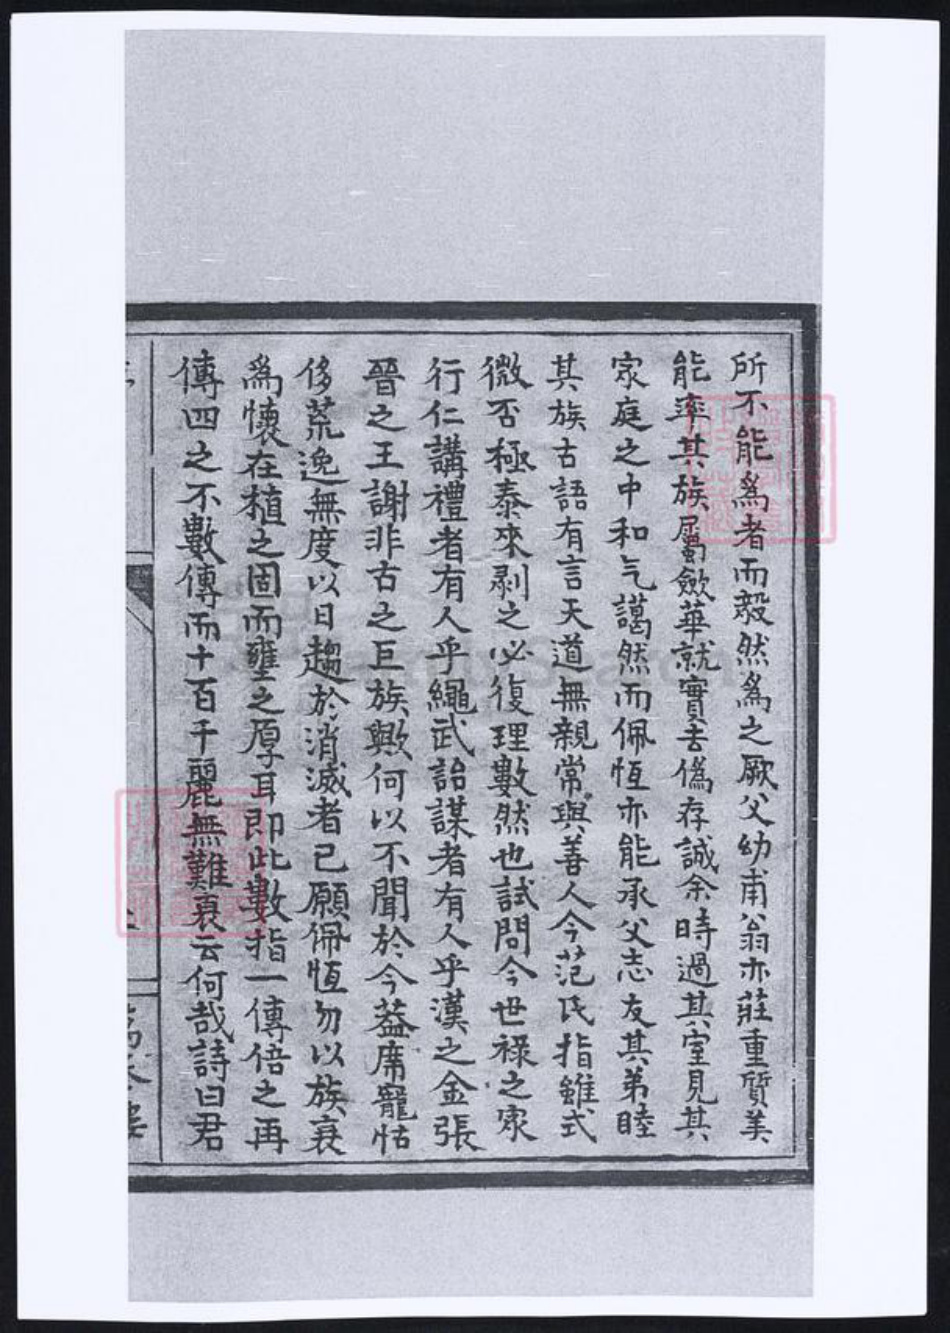 所不能爲者而毅然爲之厥父幼甫翁亦莊重質美
能率其族屬斂華就實去僞存誠余時過其室見其
家庭之中和气藹然而佩恆亦能承父志友其弟睦
其族古語有言天道無親常與善人今范氏指雖式
微否極泰來剥之必復理數然也試問今世祿之家
行仁講禮者有人乎繩武詒謀者有人乎漢之金張
晉之王謝非古之巨族歟何以不聞於今葢席寵怙
侈荒逸無度以日趨於消滅者已願佩恆勿以族衰
爲懷在植之固而壅之厚耳即此數指一傳倍之再
傳四之不數傳而十百千麗無難衰云何哉詩曰君